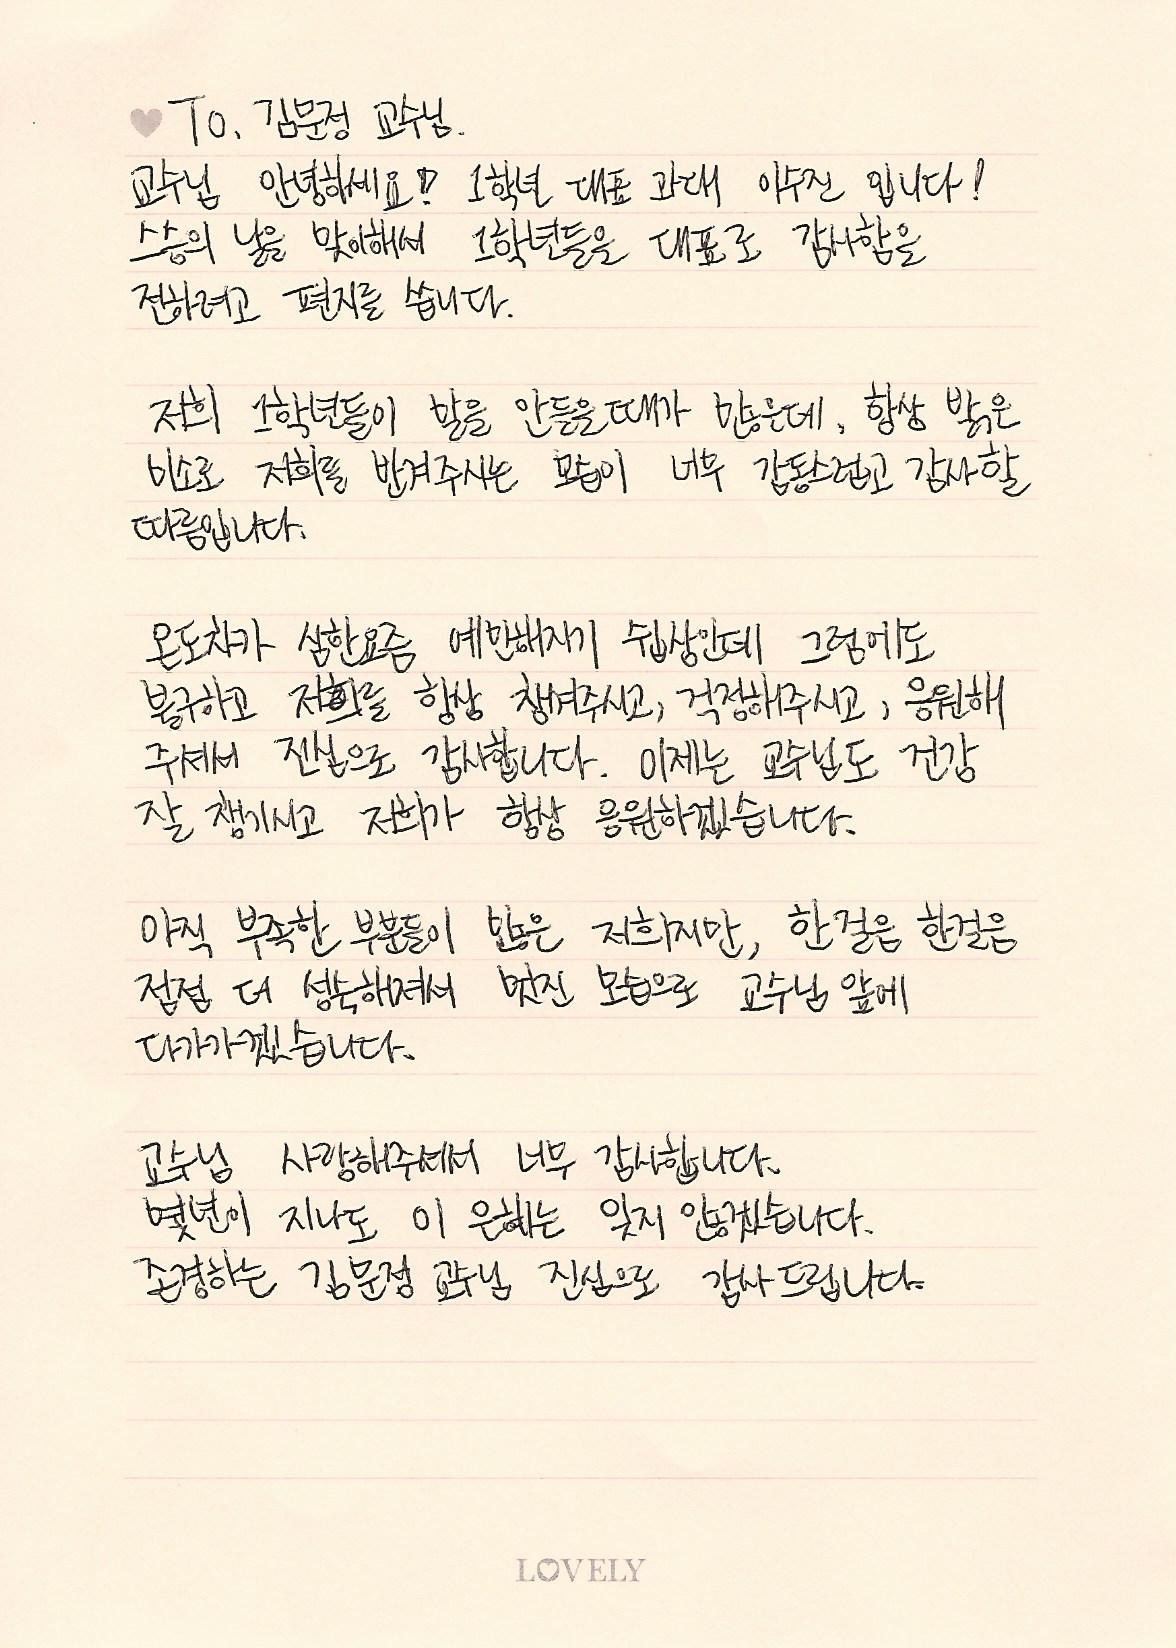 To. 김문정 교수님.
교수님 안녕하세요!? 1학년 대표 과대 이수진 입니다!
스승의 날을 맞이해서 1학년들을 대표로 감사함을
전하려고 편지를 씁니다.
저희 1학년들이 말을 안들을때가 많은데, 항상 밝은
미소로 저희를 반겨주시는 모습이 너무 감동스럽고 감사할
따름입니다.
온도차가 심한요즘 예민해지기 쉽상인데 그럼에도
불구하고 저희를 항상 챙겨주시고, 걱정해주시고, 응원해
주셔서 진심으로 감사합니다. 이제는 교수님도 건강
잘 챙기시고 저희가 항상 응원하겠습니다.
아직 부족한 부분들이 많은 저희지만, 한걸음 한걸음
점점 더 성숙해져서 멋진 모습으로 교수님 앞에
다가가겠습니다.
교수님 사랑해주셔서 너무 감사합니다.
몇년이 지나도 이 은혜는 잊지 않겠습니다.
존경하는 김문정 교수님 진심으로 감사 드립니다.
LOVELY